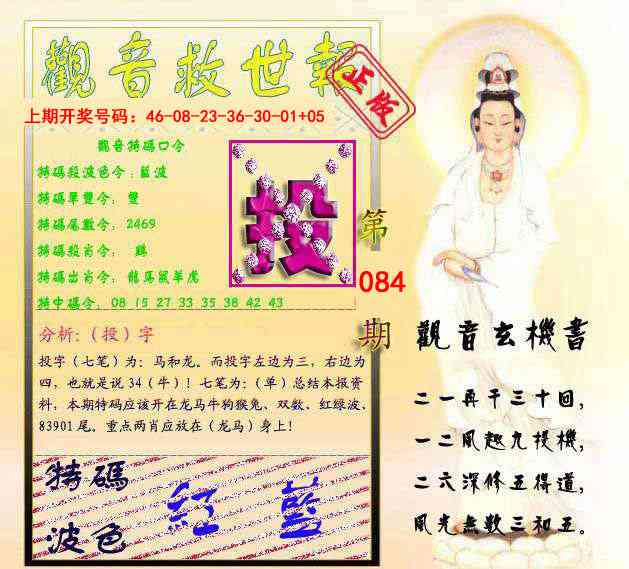 觀音救世報
正版
上期开奖号码：46-08-23-36-30-01+05
觀音特碼口令
特碼投波色令：藍波
特碼單雙令： 雙
特碼尾數令：2469
特碼投肖令： 鷄
特碼出肖令：龍馬鼠羊虎
特中碼令：08 15 27 33 35 38 42 43
投
第
084
期
分析：（投）字
投字（七笔）为：马和龙。而投字左边为三，右边为
四，也就是说34（牛）！七笔为：（单）总结本报资
料，本期特码应该开在龙马牛狗猴兔、双数、红绿波、
83901尾。重点两肖应放在（龙马）身上！
特碼
波色
紅 藍
觀音玄機書
二一再干三十回，
一二風趣九投機，
二六深修五得道，
風光無數三和五。